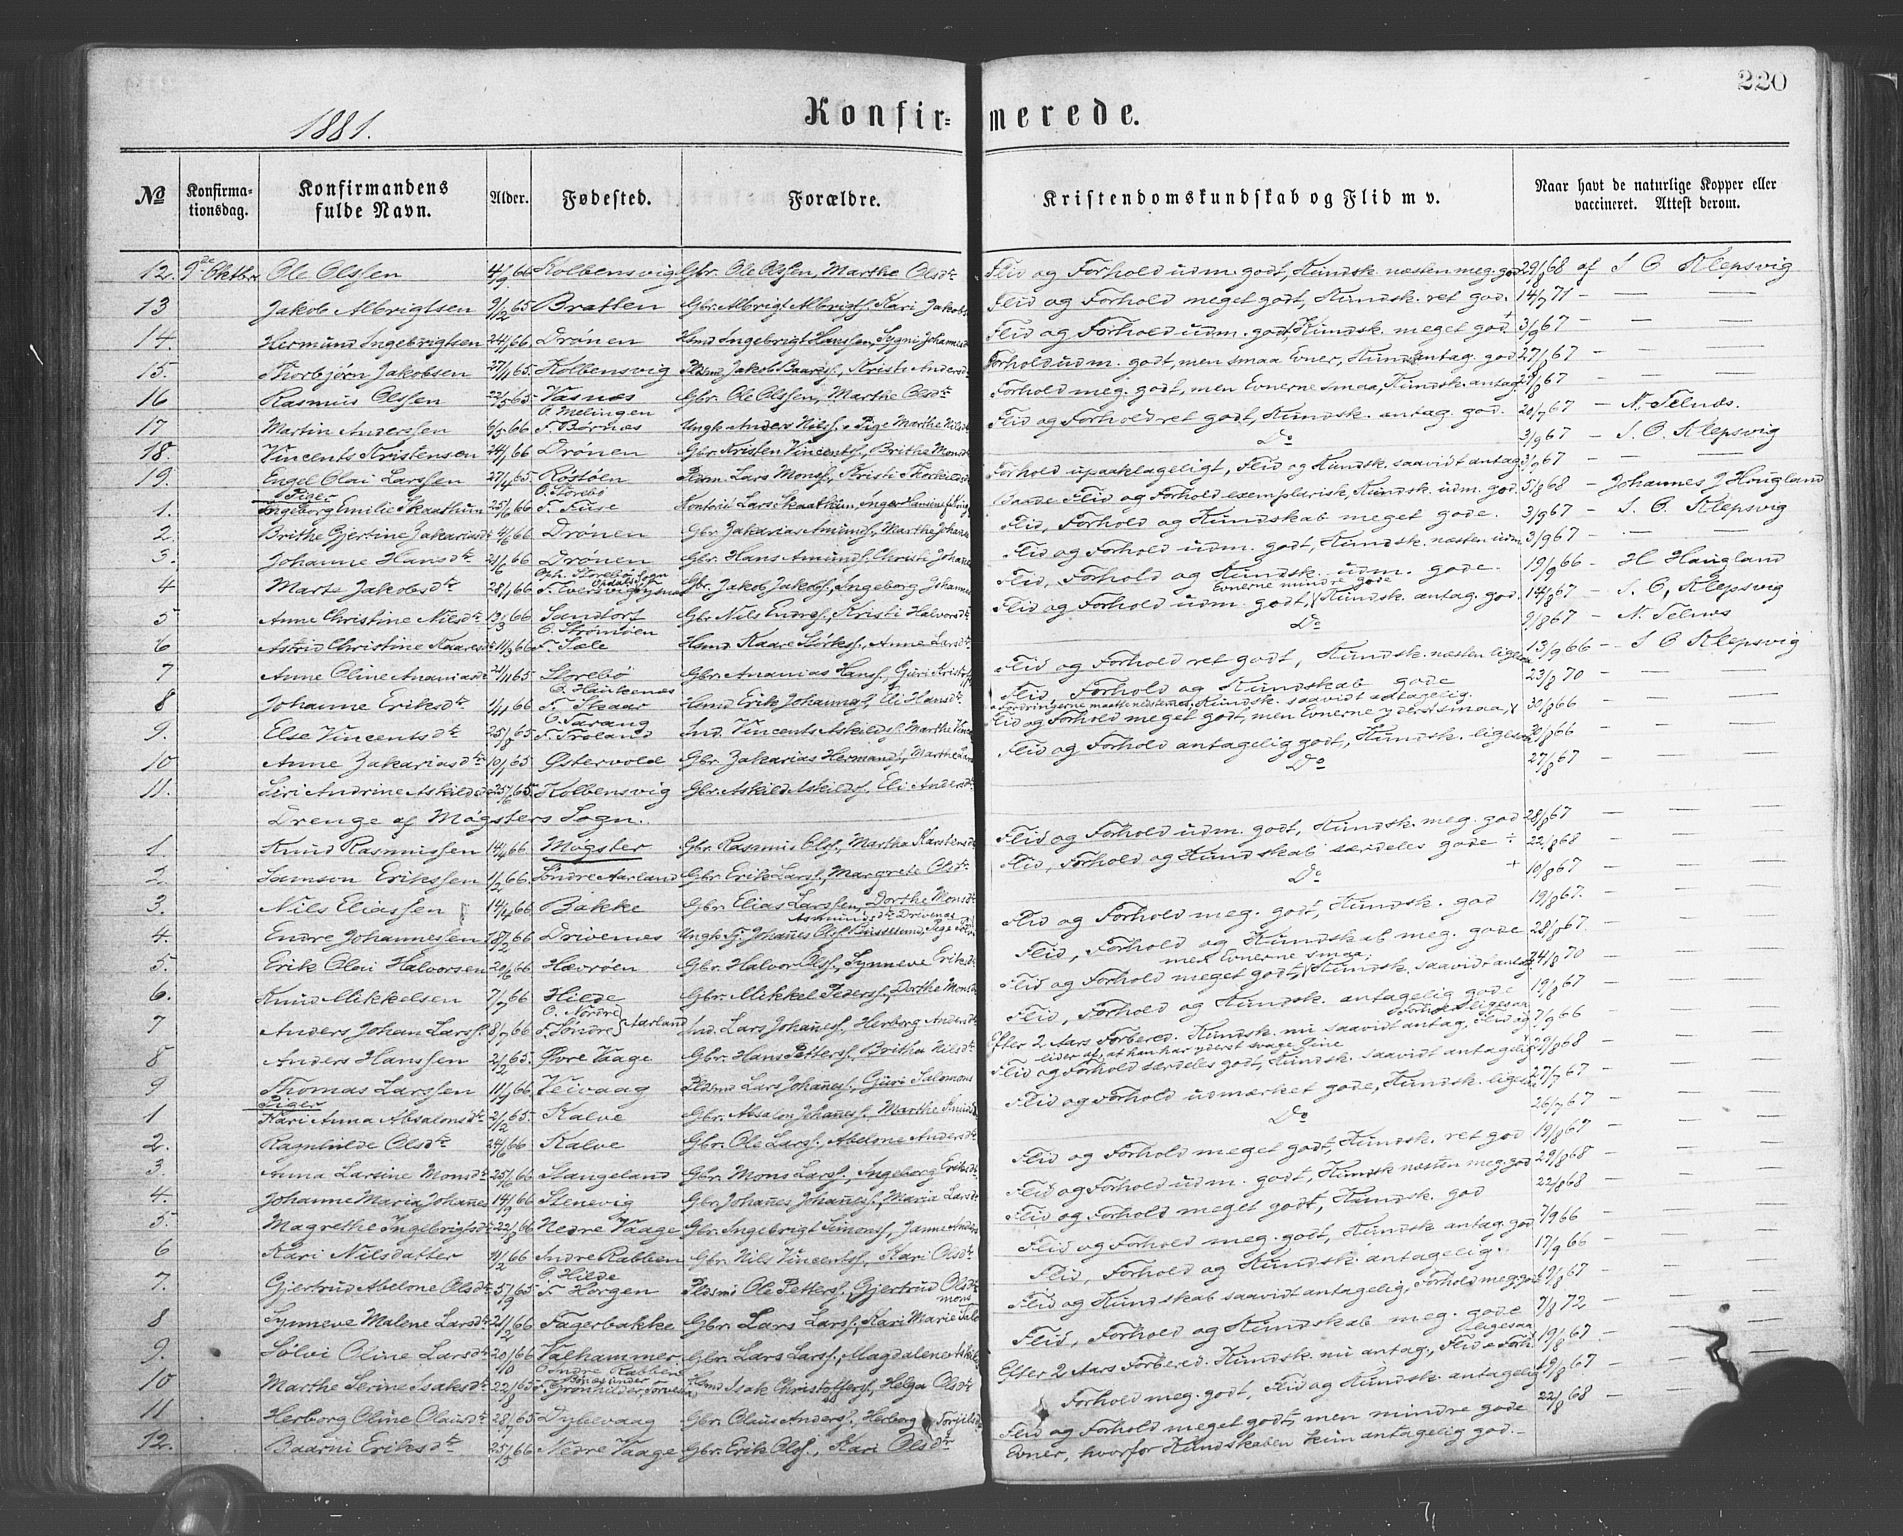 220
1881.
Konfir= merede.
№ Konfirma-tionsdag. Konfirmandens fulde Navn. Alder. Fødested. Forældre. Kristendomskundskab og Flid m v. Naar havt de naturlige Kopper eller vaccineret. Attest derom.
12. 9de Oktbr. Ole Olssen 4/9 66 Kolbensvig Gbr. Ole Olssen, Marthe Olsdtr Flid og Forhold udm. godt, Kundsk. næsten meg. god 29/8 68 af S O Klepsvig
13 Jakob Albrigtsen 9/12 65 Bratten Gbr. Albrigt Albrigtss, Kari Jakobs Flid og Forhold meget godt, Kundsk. ret god. 14/7 71 — —
14. Hermund Ingebrigtsen 24/1 66 Drönen Hsmd Ingebrigt Hanssen, Sygni Flid og Forhold udm. godt, Kundsk. meget god 3/9 67 — —
15. Thorbjørn Jakobsen 27/1 65. Kolbensvig Plsmd Jakob Baards, Kristi Anders Forhold udm. godt, men smaa Evner, Kundsk antag. god 27/8 67 — —
16 Rasmus Olssen 22/5 65 Vasnæs Gbr. Ole Olssen, Marthe Olsdtr Forhold meg. godt, men Evnerne smaa, Kundsk. antag. 67 —
17 Martin Anderssen 6/5 66 O. Melingen F. Börnæs Ungk Anders Nilss, Pige Marthe Nils Flid og Forhold ret godt, Kundsk. antag. god. 20/7 67 — N. Telnæs.
18. Vincents Kristensen 24/1 66 Drönen Gbr. Kristen Vincents, Brithe Monsd Do 3/9 67 — S. O. Klepsvig
19. Engel Olai Larssen 27/4 65 Röstöen Plsm Lars Monss, Kristi Forhold upaaklageligt, Flid og Kundsk. saavidt antag 3/9 67 — —
Piger
1. Ingeborg Emilie Skaathun 25/6 66 O. Storebö F. Fuse Kontorist Lars Skaathun, Inger Baade Flid og Forhold exemplarisk, Kundsk. udm. god. 5/8 68 — Johannes J Hougland
2. Brithe Gjertine Jakariasd 4/6 66 Drönen Gbr Zakarias Amunds, Marthe Johanne Flid, Forhold og Kundskab meget gode. 3/9 67 — S. O. Klepsvig
3. Johanne Hansdtr 21/6 66 Drönen Gbr. Hans Amunds, Christi Johanne Flid og Forhold udm. godt, Kundsk. næsten udm 3/9 67 — —
4 Marte Jakobsdtr 28/1 66 Oph. Storebö Gbr. Jakob Jakobs, Ingeborg Johannes Flid, Forhold og Kundsk. udm. gode. 19/9 66 — H Haugland
5 Anne Christine Nilsdtr 19/3 66 Sandtorf Gbr Nils Endres, Kristi Halvorsdtr Flid og Forhold udm. godt, Evnerne mindre gode Kundsk. antag. god. 14/8 67 — S. O. Klepsvig
6 Astrid Christine Kaares 11/3 66 O. Strömöen F. Sæle Hsmd. Kaare Störkss, Anne Larsdtr Do 9/8 67 — N. Telnæs
7 Anne Oline Ananiasd 21/11 65 Storebö Gbr. Ananias Hanss, Guri Flid og Forhold ret godt, Kundsk. næsten ligesaa 13/9 66 — S O Klepsvig
8 Johanne Eriksdtr 1/1 66 O. Haukenæs F. Skaar Hsmd Erik Johannes, Eli Hansdtr Flid, Forhold og Kundskab gode 23/8 70 — —
9. Else Vincentsdtr 25/8 65 O. Sarang F. Troland Ind. Vincents Askilds, Marthe Flid og Forhold meget godt, men Evnerne yderst smaa, Kundsk. saavidt antagelig. 30/8 66 — —
10 Anne Zakariasdtr 10/1 65 Østervold Gbr. Zakarias Hermands, Marthe Flid og Forhold antagelig godt, Kundsk. ligesaa 66 — —
11. Siri Andrine Askilds 25/6 65 Kolbensvig Gbr. Askild Askilds, Eli Andersdtr Do 27/8 67 — —
Drenge af Møgsters Sogn.
1. Knud Rasmussen 14/4 66 Mögster Gbr. Rasmus Olss, Martha Karstensd Flid og Forhold udm. godt, Kundsk. meg. god 28/8 67 — —
2. Samson Erikssen 1/2 66. Söndre Aarland Gbr Erik Larss, Margrete Olsdtr Flid, Forhold og Kundskab særdeles gode ÷ 22/8 68 — —
3. Nils Eliassen 14/4 66 Bakke Gbr. Elias Larssen, Dorthe Monsdtr Do + 10/8 67 — —
4. Endre Johannessen 18/2 66 Drivenes Ungk. Tj. Johanes Olss Flid og Forhold meg. godt, Kundsk. god 19/8 67. — —
5. Erik Olai Halvorsen 20/6 66 Hævröen Gbr. Halvor Olss, Synneve Eriksd Flid, Forhold og Kundskab meg. gode 28/8 67. — —
6. Knud Mikkelsen 7/7 66 Hilde Gbr. Mikkel Peders, Dorthe Monsd Flid og Forhold meget godt, men Evnerne smaa; Kundsk. saavidt antag 24/8 70 — —
7 Anders Johan Larss. 8/7 66 O. Nordre F. Söndre } Aarland Ind. Lars Johaness, Herborg Andersd Flid, Forhold og Kundsk. antagelig gode 19/8 67 — —
8 Anders Hanssen 2/2 65. Øvre Vaage Gbr. Hans Petterss, Britha Nilsdtr Efter 2 Aars Forbered. Kundsk. nu saavidt antag, Flid og Forhold ligesaa 7/9 66 — —
9 Thomas Larssen 11/1 66 Veivaag Plsmd Lars Johaness, Guri Salomons Flid og Forhold særdeles godt, Kundsk. saavidt antagelig 29/8 68 — —
Piger
1 Kari Anna Absalonsdtr 2/2 65. Kalve Gbr. Absalon Johaness, Marthe Flid og Forhold udmærket gode, Kundsk. ligesaa 27/7 67 — —
2. Ragnhilde Olsdtr 24/6 66 Kalve Gbr. Ole Larss. Abelone Andersd Do 26/7 67 — —
3. Anna Larsine Monsdtr 25/6 66 Stangeland Gbr. Mons Larss, Ingeborg Eriksd Flid og Forhold meget godt, Kundsk. ret god 19/8 67 — —
4. Johanne Maria Johanes 14/9 66 Stenevig Gbr Johanes Johaness, Maria Larsd Flid og Forhold udm. godt, Kundsk næsten meg god 29/8 68 — —
5. Magrethe Ingebrigtsd 22/8 66 Nedre Vaage Gbr. Ingebrigt Simonss, Janna Anders Flid og Forhold meget godt, Kundsk. god 22/8 68 — —
6 Kari Nilsdatter 11/2 66 Indre Rabben Gbr. Nils Vincents, Kari Olsdtr Flid og Forhold meg. godt, Kundsk. antag. god 7/9 66 — —
7. Gjertrud Abelone Olsdtr 5/9 65 O. Hilde F. Horgen Plsmd Ole Petterss, Gjertrud Olsdtr Flid, Forhold og Kundsk. antagelig. 17/9 66 — —
8 Synneve Malene Larsdtr 21/2 66 Fagerbakke Gbr. Lars Larss, Kari Marie Flid og Kundskab saavidt antagelig, Forhold meg god 19/8 67 — —
9. Sølvi Oline Larsdtr 20/10 66 Valhammer Gbr. Lars Larss, Magdalene Flid, Forhold og Kundskab meg. gode 7/8 72 — —
10 Marthe Serine Isaksdtr 22/8 65 O. Indre Rabben Hsmd Isak Christoffers, Helga Olsdtr Efter 2 Aars Forbered. Kundsk. nu antag, Flid o Forh. ligesaa 19/8 67. — —
11 Herborg Oline Olausdtr 28/7 65 Dybevaag Gbr. Olaus Anders, Herborg Torjils Forhold meg. godt, Flid og Kundsk. antagelig 19/8 67 —
12. Baarni Eriksdtr 25/3 66 Nedre Vaage Gbr. Erik Olss, Kari Olsdtr Flid og Forhold meget godt, men mindre gode Evner, hvorfor Kundskaben kun antagelig god. 22/8 68 —